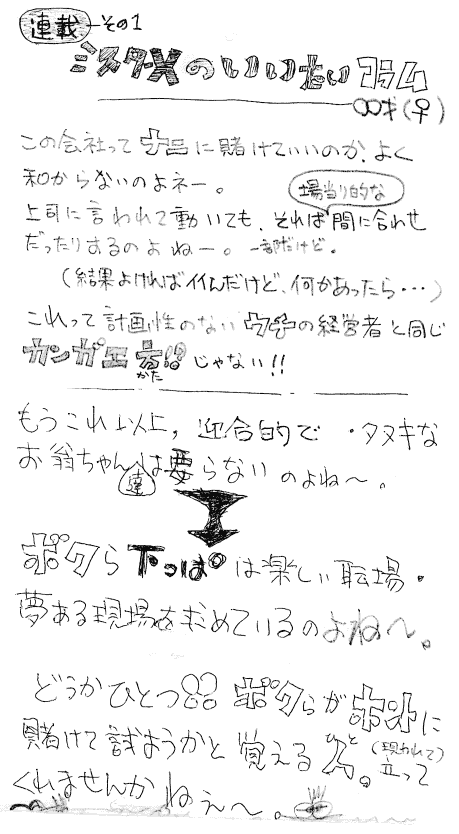 連載 その1
ミスターXのいいたいコラム
○○才(♀)
この会社ってナニに賭けていいのか、よく
和からないのよネー。
場当り的な
上司に言われて動いても、それは間に合わせ
だったりするのよねー。一部だけど。
(結果よければイイんだけど、何かあったら…)
これって計画性のないウチの経営者と同じ
カンガエ方!!じゃない!!
かた
もうこれ以上, 迎合的で・タヌキな
お翁ちゃん達は要らないのよね〜。
ボクら下っぱは楽しい職場・
夢ある現場を求めているのよね〜。
どうかひとつ ボクらがホントに
賭けて試ようかと覚える人。(現われて)立って
ヒト
くれませんかねぇ〜。